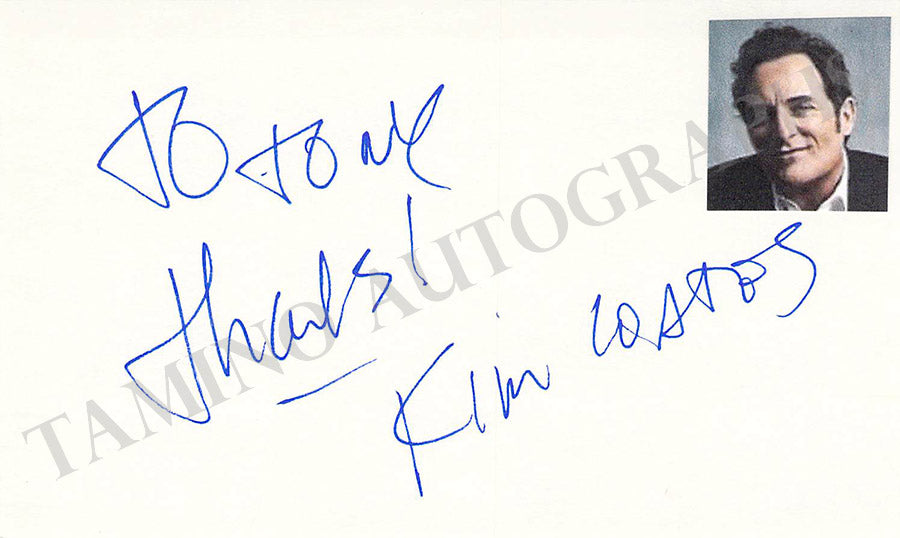 To Tony
Thanks!
Kim Coates
TAMINO AUTOGRAPHS